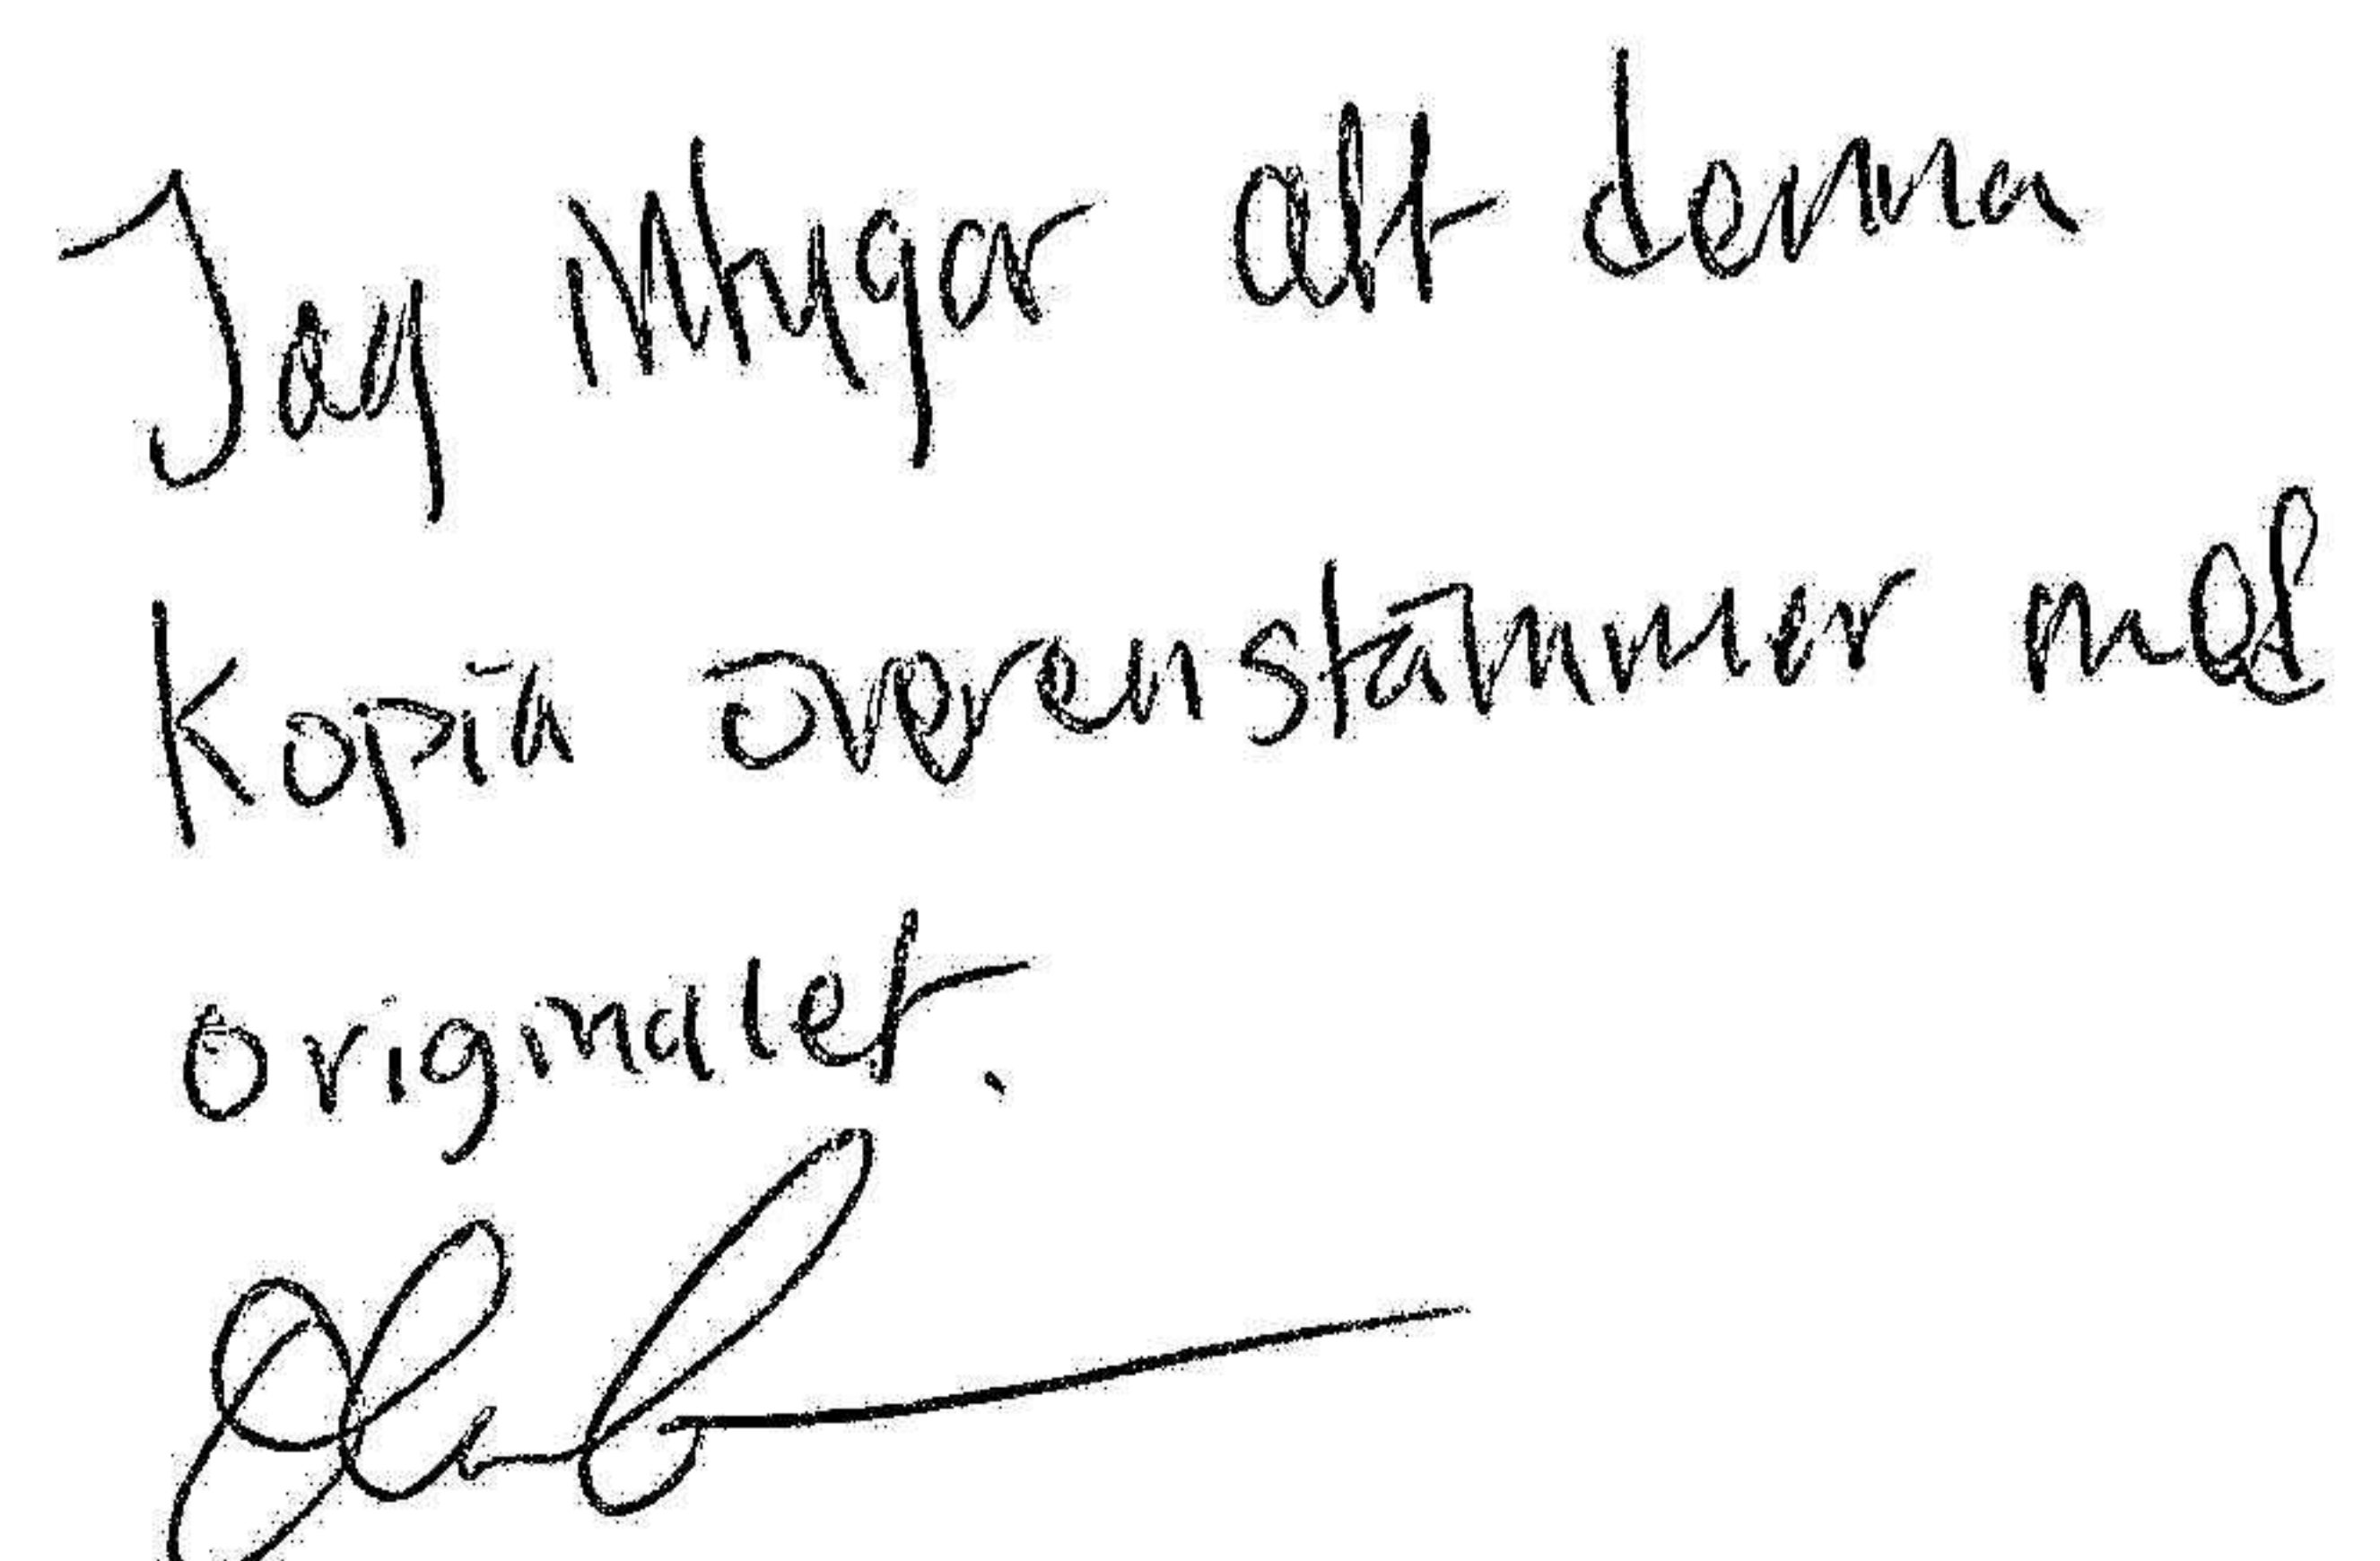 Jag intygar att denna
kopia överenstämmer med
originalet.